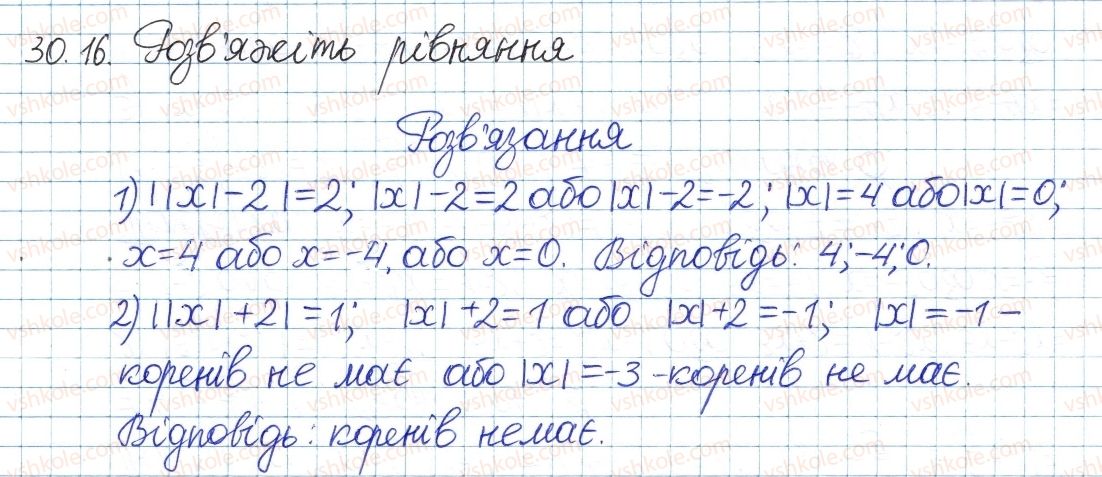 30.16. Розв'яжіть рівняння
Розв'язання
1) ||x|-2|=2; |x|-2=2 або |x|-2=-2; |x|=4 або |x|=0;
x=4 або x=-4, або x=0. Відповідь: 4;-4;0.
2) ||x|+2|=1; |x|+2=1 або |x|+2=-1; |x|=-1 –
коренів не має або |x|=-3 -коренів не має.
Відповідь: коренів немає.